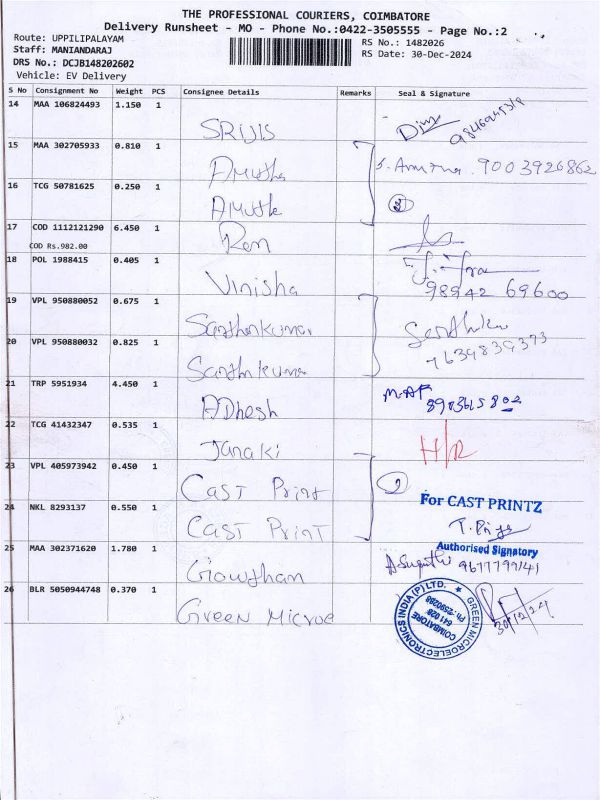 THE PROFESSIONAL COURIERS, COIMBATORE
Delivery Runsheet - MO - Phone No.:0422-3505555 - Page No.:2
Route: UPPILIPALAYAM
RS No.: 1482026
Staff: MANIANDARAJ
RS Date: 30-Dec-2024
DRS No.: DCJB148202602
Vehicle: EV Delivery
S No Consignment No Weight PCS Consignee Details Remarks Seal & Signature
14 MAA 106824493 1.150 1
SRIJIS
15 MAA 302705933 0.810 1
Amutha 9003926862
16 TCG 50781625 0.250 1
Amutha
17 COD 1112121290 6.450 1
Ram
COD Rs.982.00
18 POL 1988415 0.405 1
Vinisha
98942 69600
19 VPL 950880052 0.675 1
Santhoshkumar
20 VPL 950880032 0.825 1
7639839373
21 TRP 5951934 4.450 1
ADhesh
8903615802
22 TCG 41432347 0.535 1
Janaki
23 VPL 405973942 0.450 1
Cast Print
For CAST PRINTZ
24 NKL 8293137 0.550 1
Cast Print
Authorised Signatory
25 MAA 302371620 1.780 1
Gowthan 9677799141
26 BLR 5050944748 0.370 1
Green Microe
GREEN MICROELECTRONICS INDIA (P) LTD.
COIMBATORE
641 028
30/12/24